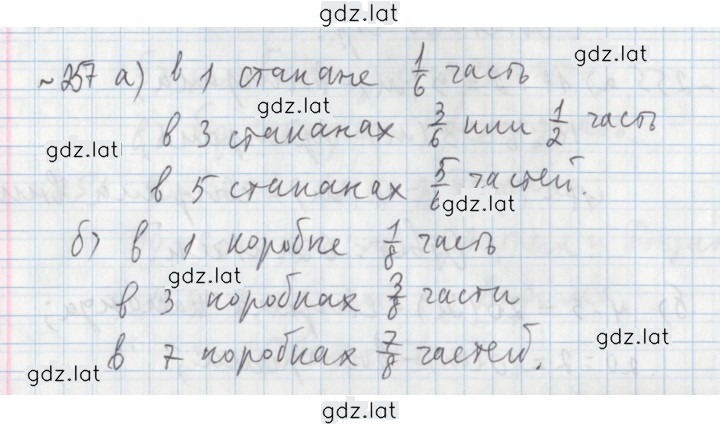 gdz.lat
~257 а) в 1 стакане 1/6 часть gdz.lat
gdz.lat
в 3 стаканах 3/6 или 1/2 часть
gdz.lat
в 5 стаканах 5/6 частей.
gdz.lat
б) в 1 коробке 1/8 часть
gdz.lat
в 3 коробках 3/8 части
gdz.lat
в 7 коробках 7/8 частей.
gdz.lat
gdz.lat